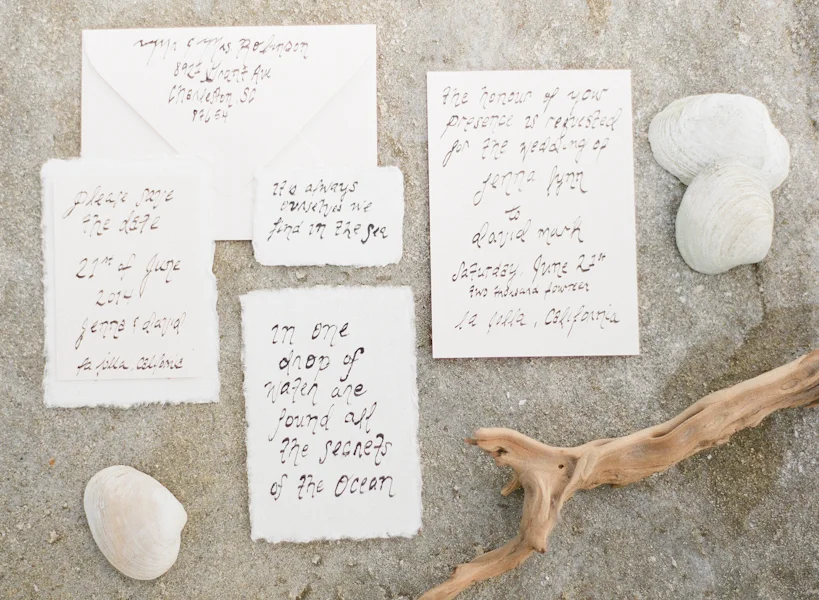 Mr & Mrs Robinson
Grant Ave
Charleston SC
please save
the date
21st of June
2014
Jenna & david
la jolla, California
it is always
ourselves we
find in the sea
in one
drop of
water are
found all
the secrets
of the Ocean
the honour of your
presence is requested
for the wedding of
jenna lynn
to
david mark
Saturday, June 21st
two thousand fourteen
la jolla, California